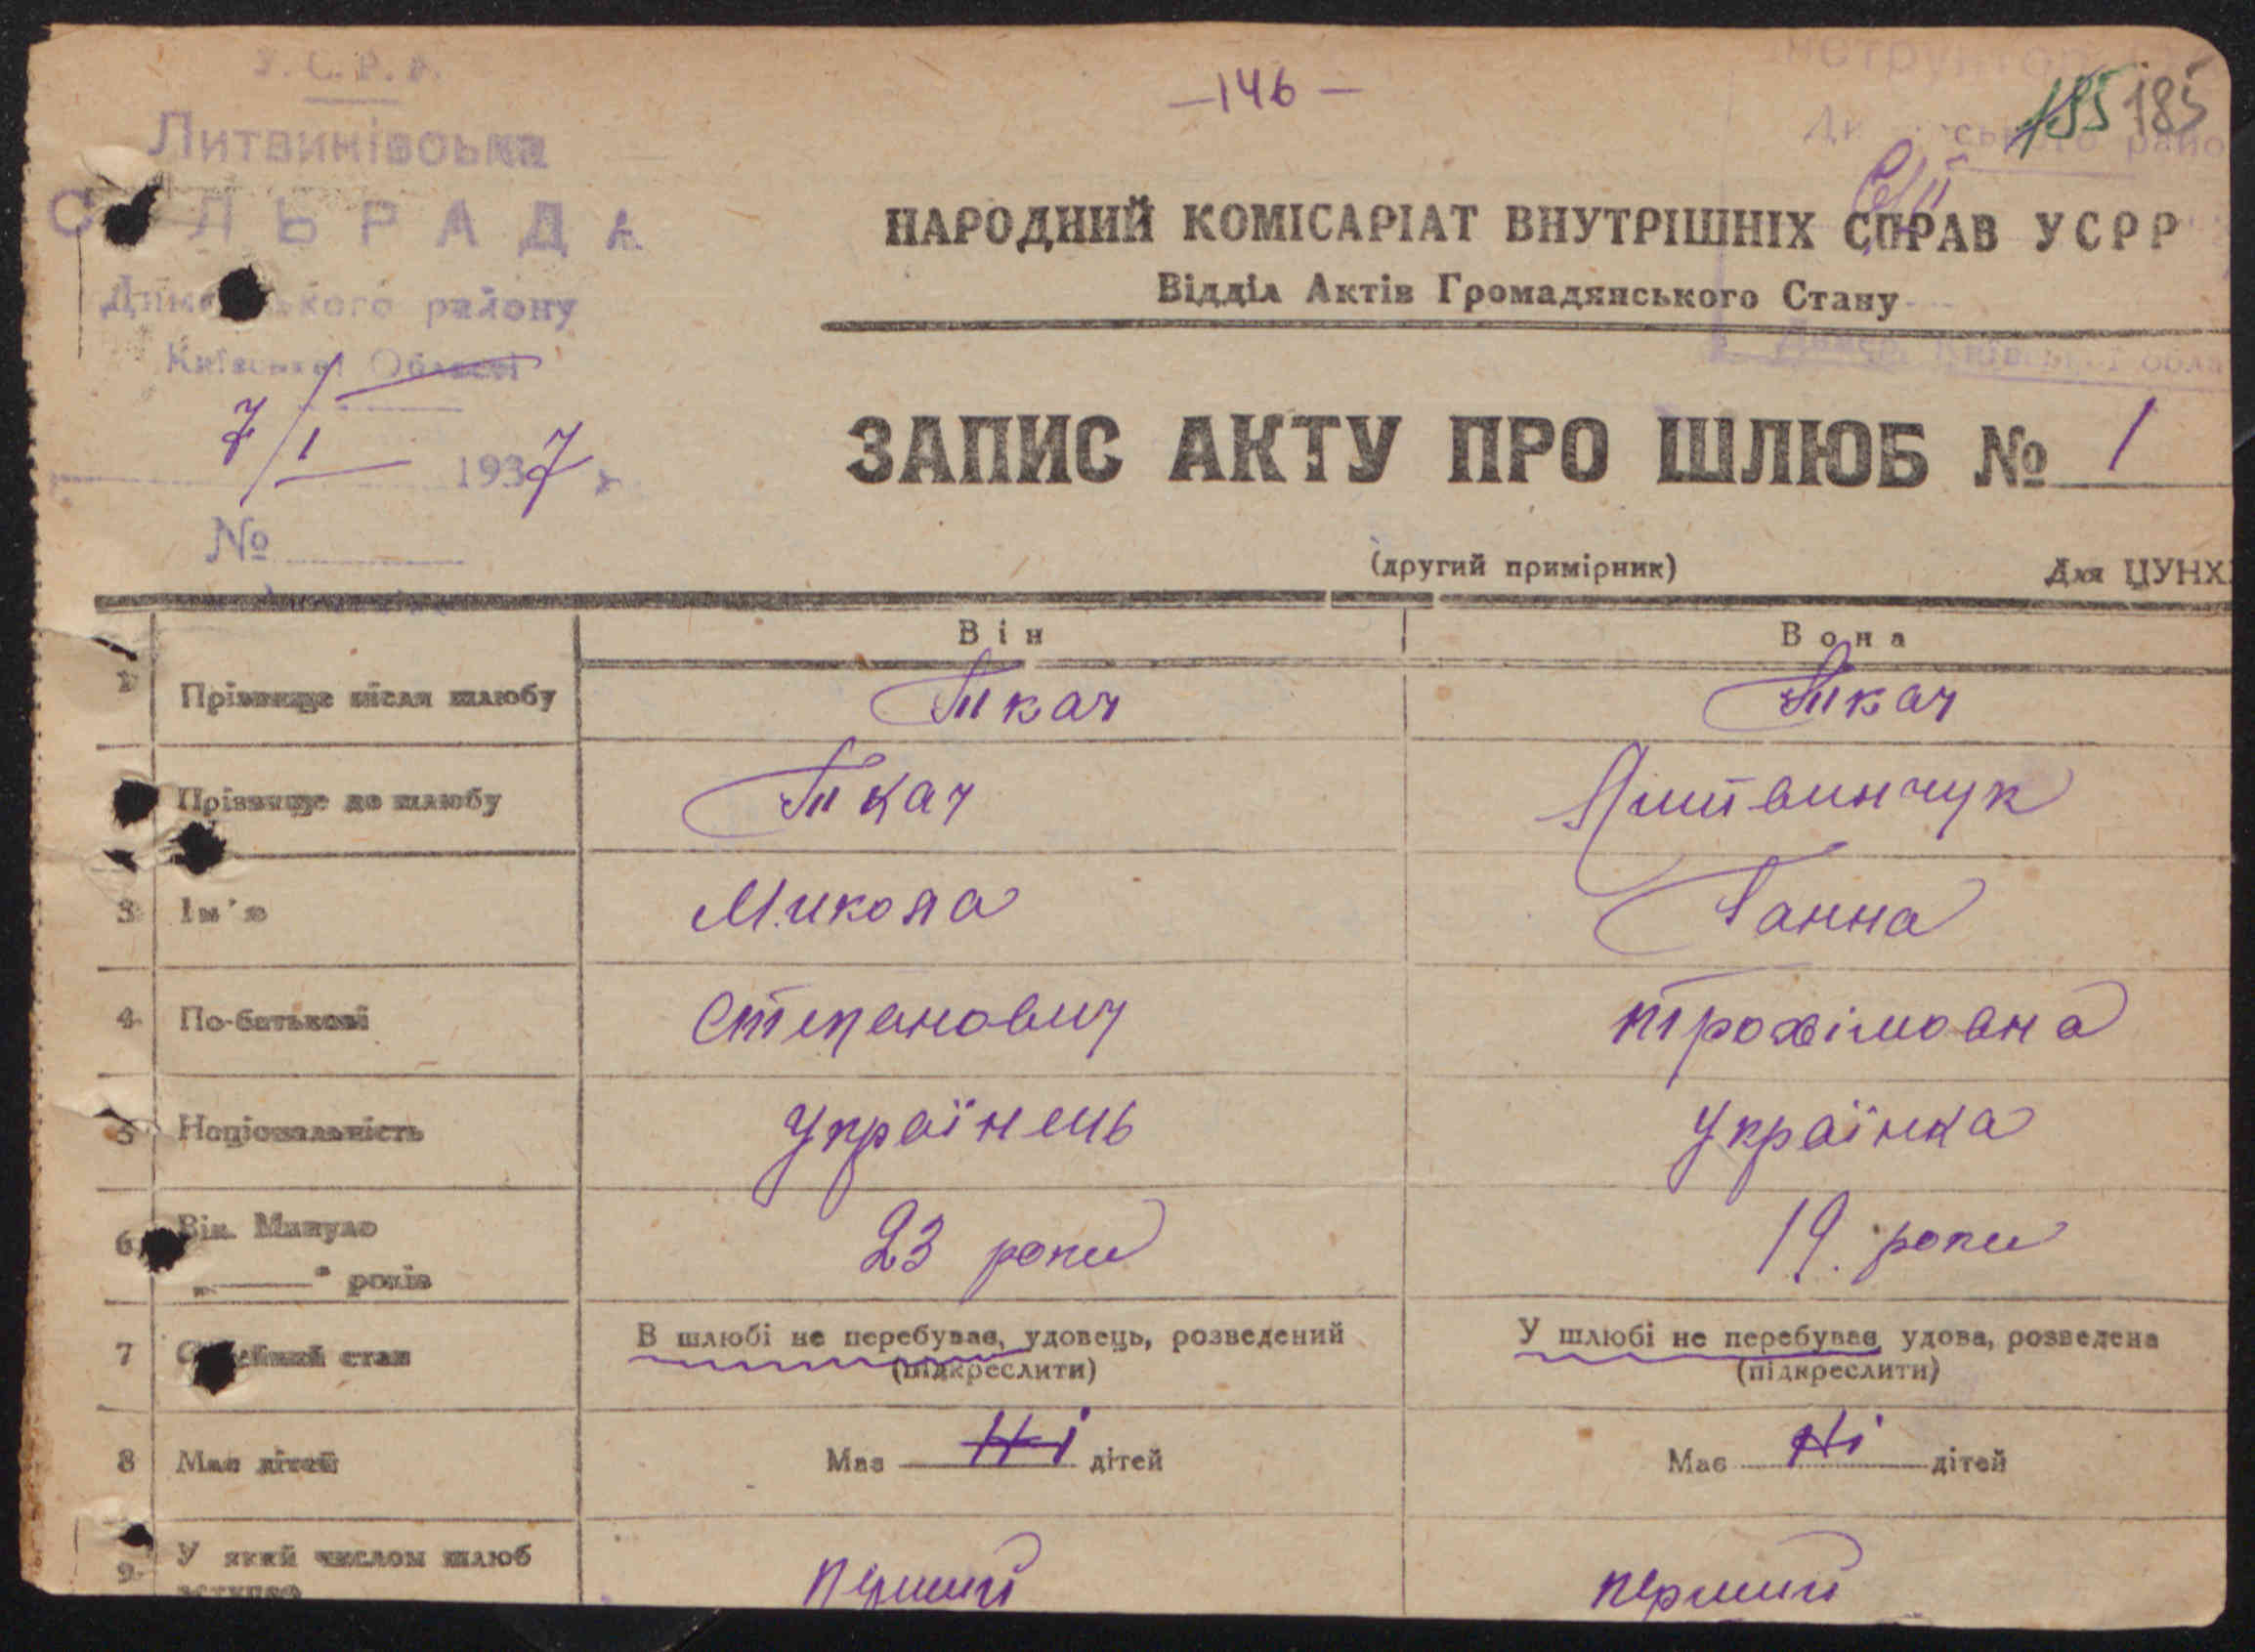 У.С.Р.Р.
Литвинівська
СІЛЬРАДА
Димерського району
Київської Області
7/1 1937 р
№
—146—
185 185
НАРОДНИЙ КОМІСАРІАТ ВНУТРІШНІХ СПРАВ УСРР
Відділ Актів Громадянського Стану
ЗАПИС АКТУ ПРО ШЛЮБ № 1
(другий примірник) Для ЦУНХ
Він Вона
1 Прізвище після шлюбу Ткач Ткач
Прізвище до шлюбу Ткач Литвинчук
3 Ім'я Микола Ганна
4 По-батькові Степанович Трохімовна
5 Національність Українець Українка
6 Вік. Минуло 23 роки 19. роки
„———" років
7 Сімейний стан В шлюбі не перебуває, удовець, розведений У шлюбі не перебуває удова, розведена
(підкреслити) (підкреслити)
8 Має дітей Має Ні дітей Має Ні дітей
9 У який числом шлюб перший перший
вступає